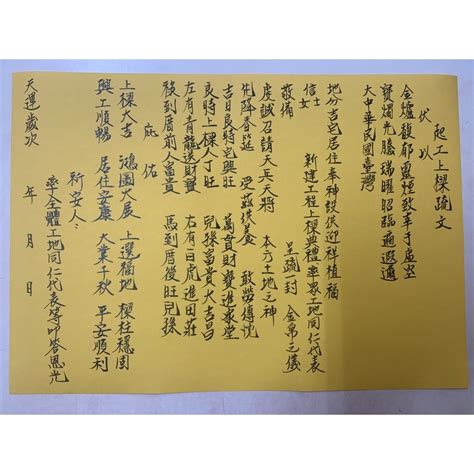 起工上樑疏文
伏以
金爐馥郁靈煙致奉于虛空
寶燭光騰瑞曜昭臨遍遐邇
大中華民國臺灣
地分吉宅居住奉神設供迎祥植福
信士
女
新建工程上樑典禮率眾工地同仁代表
敬備
呈疏一封 金帛之儀
虔誠召請天兵天將 本方土地之神
先降香筵 受茲供養 敢勞傳忱
吉日良時宅興旺 萬貫財寶進家堂
良時上樑人丁旺 兒孫富貴大吉昌
左有青龍送財寶 右有白虎進田莊
祿到厝前人富貴 馬到厝後旺兒孫
庇佑
上樑大吉 鴻圖大展 上選福地 樑柱穩固
興工順暢 居住安康 大業千秋 平安順利
新安人:
率全體工地同仁代表等叩答恩光
天運歲次 年 月 日